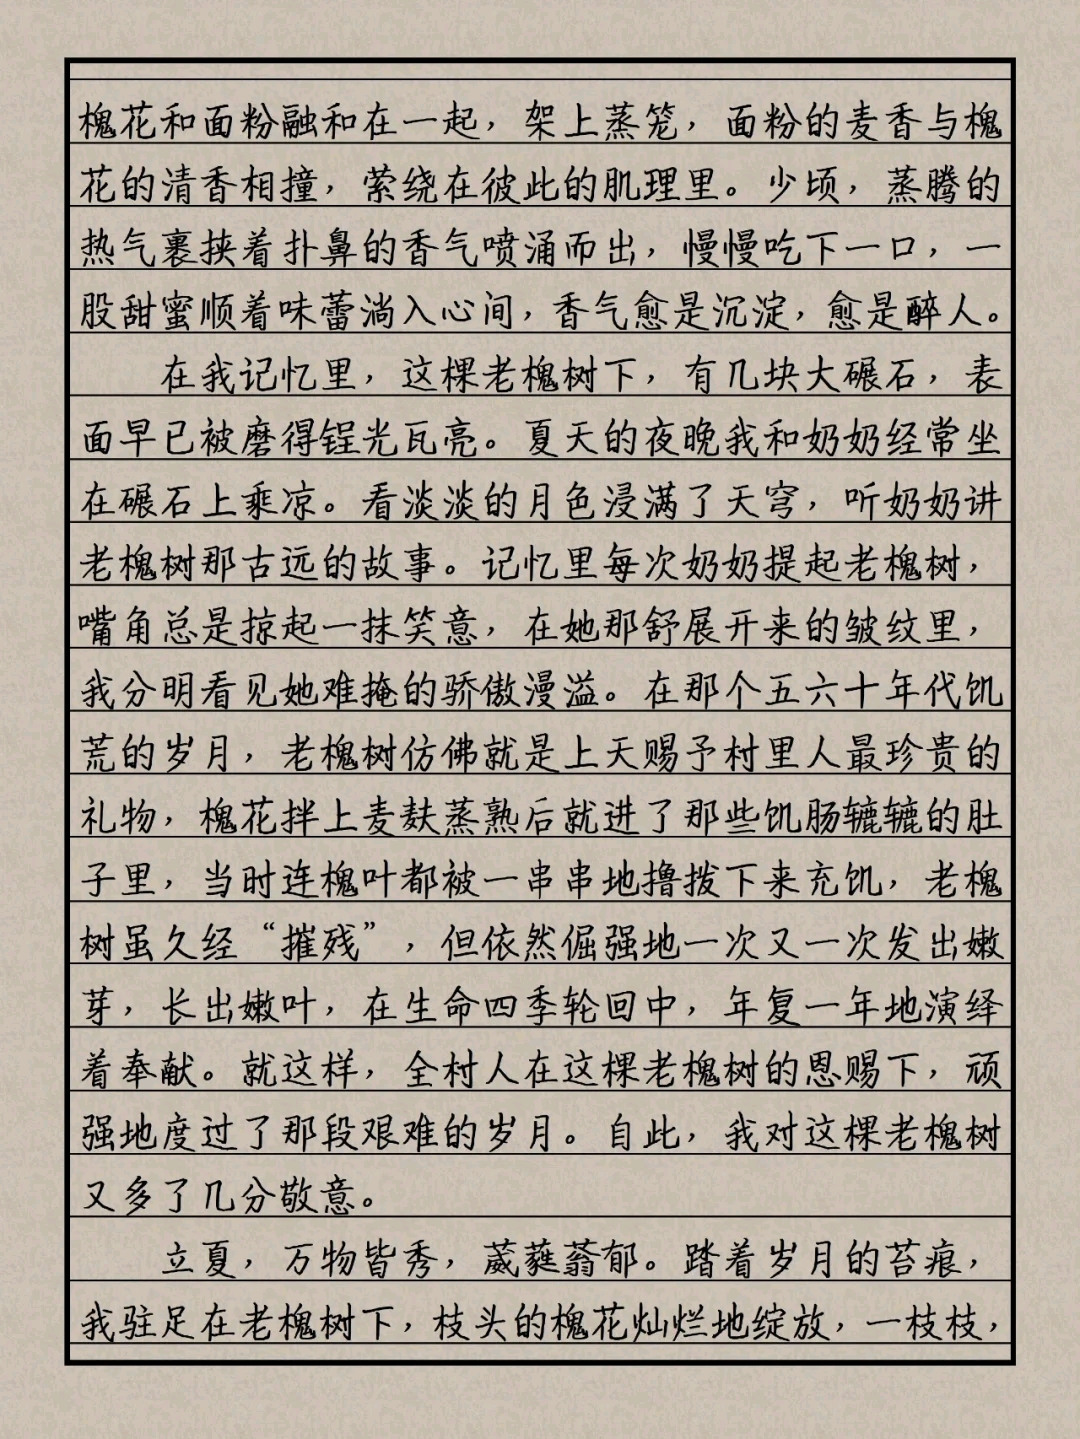 槐花和面粉融和在一起，架上蒸笼，面粉的麦香与槐
花的清香相撞，萦绕在彼此的肌理里。少顷，蒸腾的
热气裹挟着扑鼻的香气喷涌而出，慢慢吃下一口，一
股甜蜜顺着味蕾淌入心间，香气愈是沉淀，愈是醉人。
在我记忆里，这棵老槐树下，有几块大碾石，表
面早已被磨得锃光瓦亮。夏天的夜晚我和奶奶经常坐
在碾石上乘凉。看淡淡的月色浸满了天穹，听奶奶讲
老槐树那古远的故事。记忆里每次奶奶提起老槐树，
嘴角总是掠起一抹笑意，在她那舒展开来的皱纹里，
我分明看见她难掩的骄傲漫溢。在那个五六十年代饥
荒的岁月，老槐树仿佛就是上天赐予村里人最珍贵的
礼物，槐花拌上麦麸蒸熟后就进了那些饥肠辘辘的肚
子里，当时连槐叶都被一串串地撸拨下来充饥，老槐
树虽久经“摧残”，但依然倔强地一次又一次发出嫩
芽，长出嫩叶，在生命四季轮回中，年复一年地演绎
着奉献。就这样，全村人在这棵老槐树的恩赐下，顽
强地度过了那段艰难的岁月。自此，我对这棵老槐树
又多了几分敬意。
立夏，万物皆秀，葳蕤蓊郁。踏着岁月的苔痕，
我驻足在老槐树下，枝头的槐花灿烂地绽放，一枝枝，